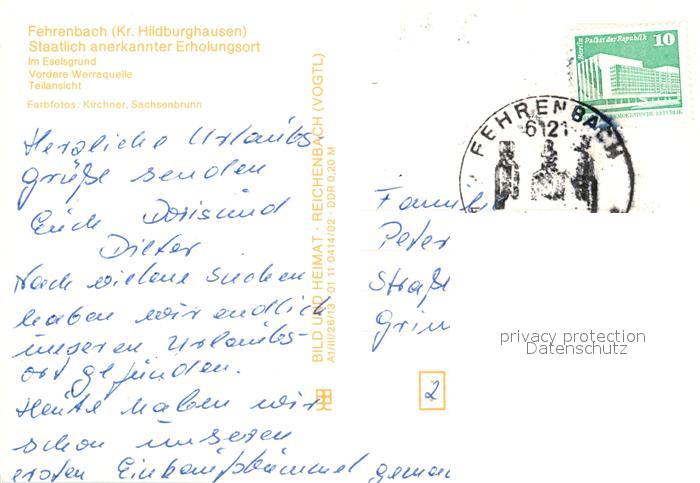 Fehrenbach (Kr. Hildburghausen)
Staatlich anerkannter Erholungsort
Im Eselsgrund
Vordere Werraquelle
Teilansicht
Farbfotos: Kirchner, Sachsenbrunn
Herzliche Urlaubs-
grüße senden
Euch Doris und
Dieter
Nach vielem Suchen
haben wir endlich
unseren Urlaubs-
ort gefunden.
Heute haben wir
schon unseren
ersten Einkaufsbummel gemac
BILD UND HEIMAT · REICHENBACH (VOGTL)
A1/III/26/13 01 11 0414/02 · DDR 0,20 M
Berlin Palast der Republik
10
DEMOKRATISCHE REPUBLIK
FEHRENBACH
6121
Famili
Peter
Straße
2
privacy protection
Datenschutz